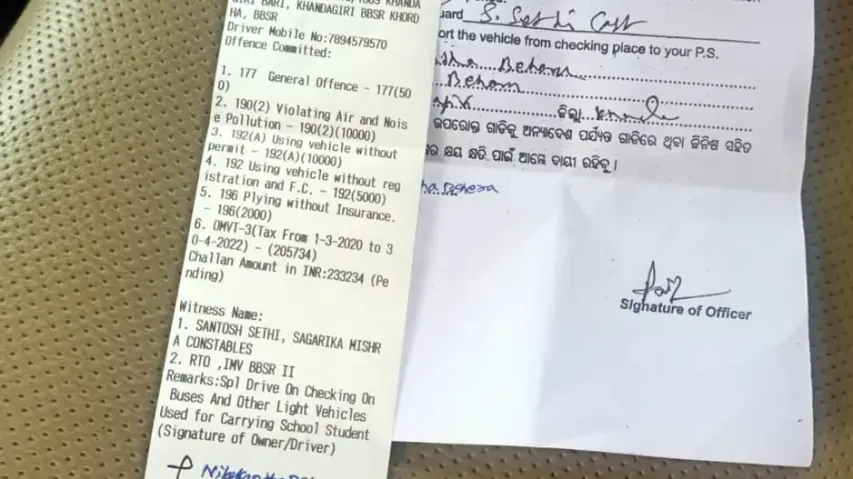 BARI, KHANDAGIRI BBSR KHORD
HA, BBSR
Driver Mobile No:7894579570
Offence Committed:
1. 177 General Offence - 177(50
0)
2. 190(2) Violating Air and Nois
e Pollution - 190(2)(10000)
3. 192(A) Using vehicle without
permit - 192(A)(10000)
4. 192 Using vehicle without reg
istration and F.C. - 192(5000)
5. 196 Plying without Insurance.
- 196(2000)
6. OMVT-3(Tax From 1-3-2020 to 3
0-4-2022) - (205734)
Challan Amount in INR:233234 (Pe
nding)
Witness Name:
1. SANTOSH SETHI, SAGARIKA MISHR
A CONSTABLES
2. RTO ,IMV BBSR II
Remarks:Spl Drive On Checking On
Buses And Other Light Vehicles
Used for Carrying School Student
(Signature of Owner/Driver)
uard S. Sethi
ort the vehicle from checking place to your P.S.
Behera
ଜିଲ୍ଲା
ଉପରୋକ୍ତ ଗାଡିକୁ ଅନ୍ୟାଦେଶ ପର୍ଯ୍ୟନ୍ତ ଗାଡିରେ ଥିବା ଜିନିଷ ସହିତ
କ୍ଷୟ କ୍ଷତି ପାଇଁ ଆପେ ଦାୟୀ ରହିବୁ ।
Behera
Signature of Officer